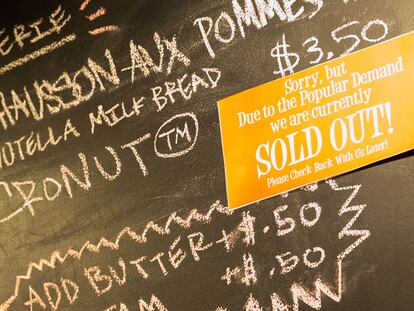 ERIE
HAUSSON AUX POMMES $3.50
NUTELLA MILK BREAD
CRONUT TM
Sorry, but
Due to the Popular Demand
we are currently
SOLD OUT!
Please Check Back With Us Later!
ADD BUTTER +$.50
+$.50